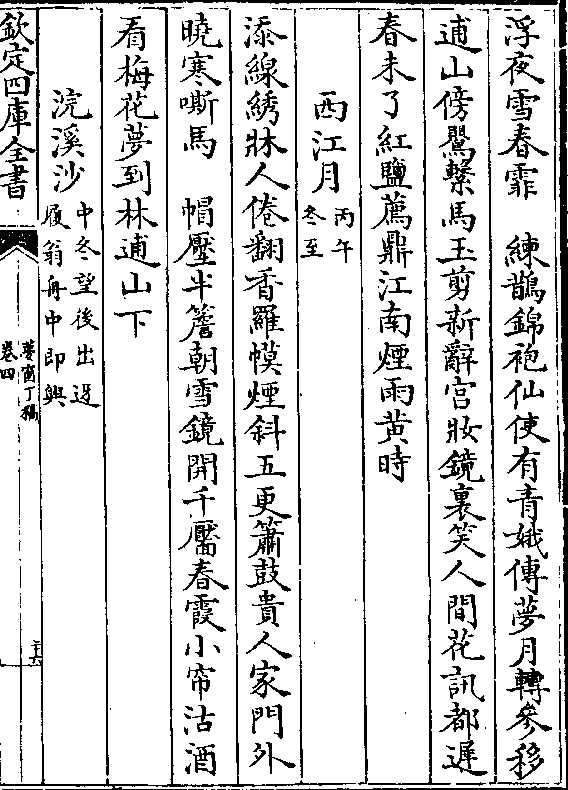 浮夜雪春霏　練鵲錦袍仙使有青娥傳夢月轉參移
逋山傍鶴繫馬玉剪新辭宮妝鏡裏笑人間花訊都遲
春未了紅鹽薦鼎江南煙雨黃時
西江月丙午冬至
添線綉牀人倦翻香羅幙煙斜五更簫鼓貴人家門外
曉寒嘶馬　帽壓半簷朝雪鏡開千靨春霞小帘沽酒
看梅花夢到林逋山下
浣溪沙中冬望後出迓履翁舟中即興
欽定四庫全書
夢窗丁稿
卷四
二十六